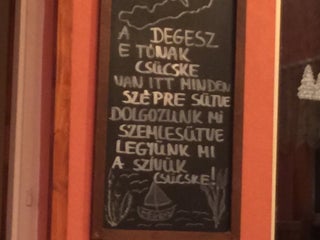 A DEGESZ
E TÓNAK
CSÜCSKE
VAN ITT MINDEN
SZÉPRE SÜTVE
DOLGOZUNK MI
SZEMLESÜTVE
LEGYÜNK MI
A SZÍVÜK
CSÜCSKE!